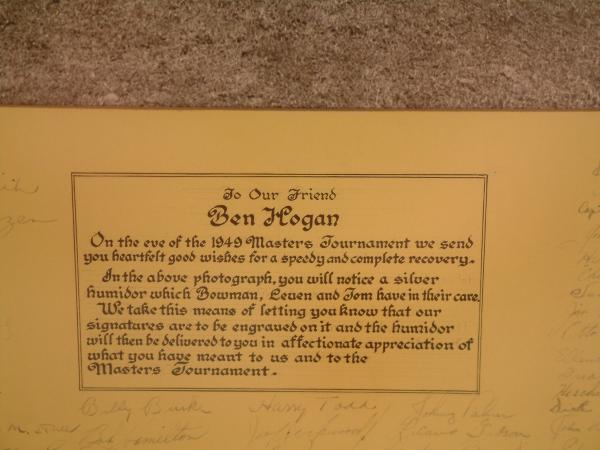 To Our Friend
Ben Hogan
On the eve of the 1949 Masters Tournament we send
you heartfelt good wishes for a speedy and complete recovery.
In the above photograph, you will notice a silver
humidor which Bowman, Leuen and Tom have in their care.
We take this means of letting you know that our
signatures are to be engraved on it and the humidor
will then be delivered to you in affectionate appreciation of
what you have meant to us and to the
Masters Tournament.
Billy Burke Harry Todd Johnny Palmer
Bob Hamilton
Dick